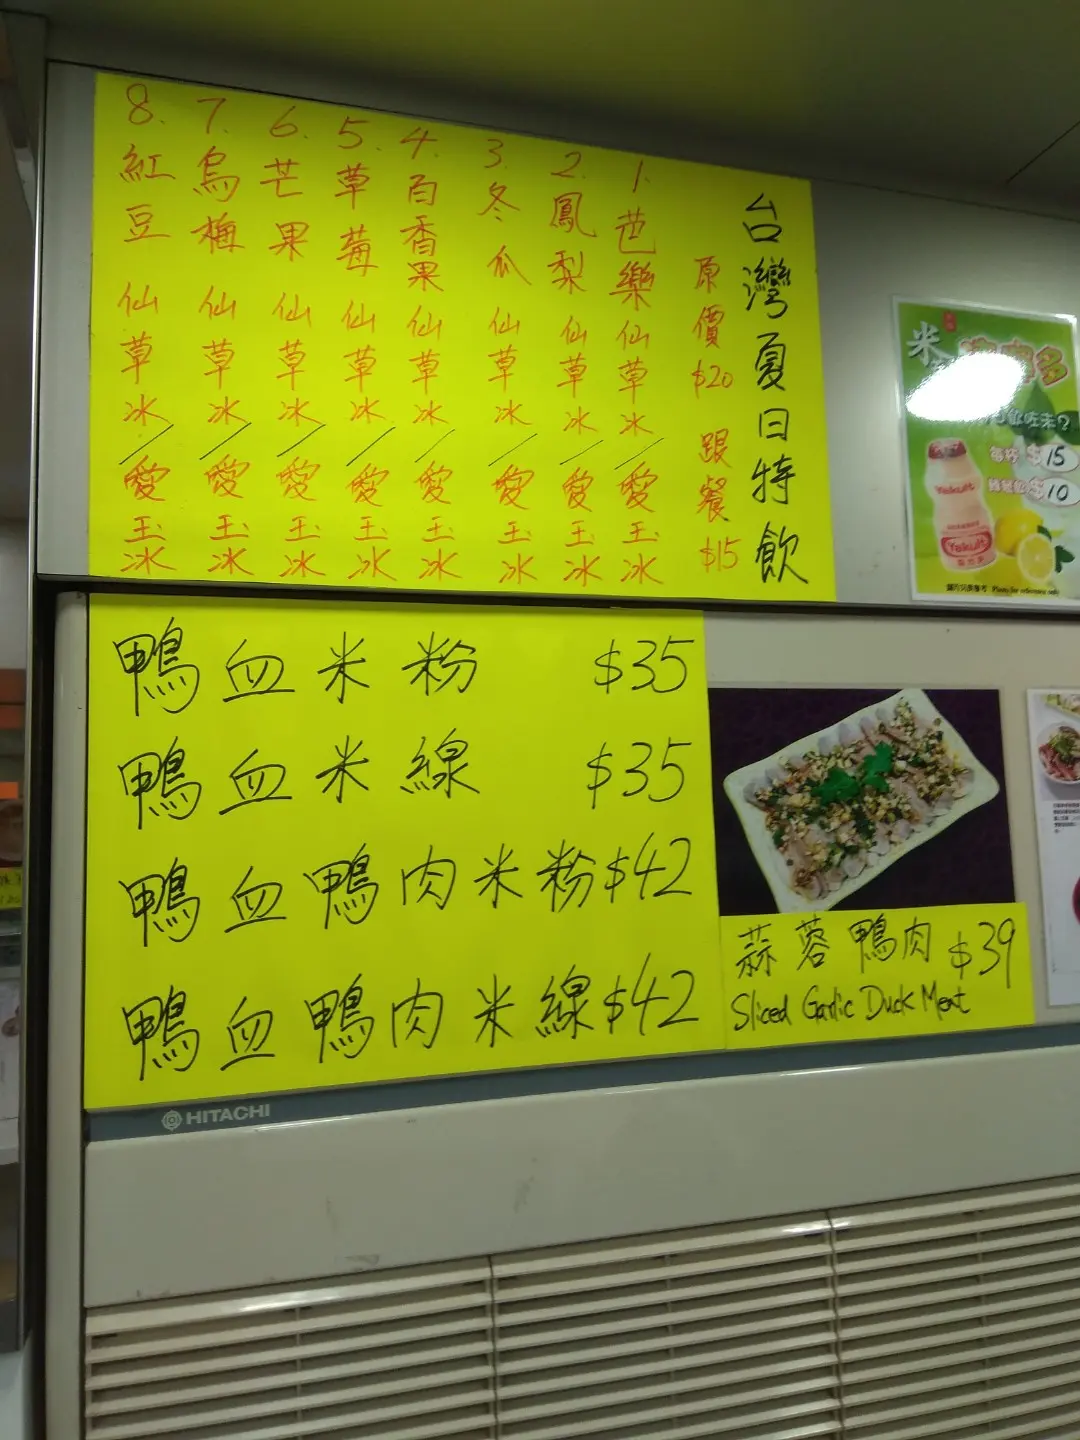 台灣夏日特飲
原價$20 跟餐$15
1. 芭樂仙草冰/愛玉冰
2. 鳳梨仙草冰/愛玉冰
3. 冬瓜仙草冰/愛玉冰
4. 百香果仙草冰/愛玉冰
5. 草莓仙草冰/愛玉冰
6. 芒果仙草冰/愛玉冰
7. 烏梅仙草冰/愛玉冰
8. 紅豆仙草冰/愛玉冰
米
多
飲咗未?
每杯 $15
$10
Yakult
Yakult
Photo for reference only
鴨血米粉 $35
鴨血米線 $35
鴨血鴨肉米粉$42
鴨血鴨肉米線$42
蒜蓉鴨肉 $39
Sliced Garlic Duck Meat
HITACHI